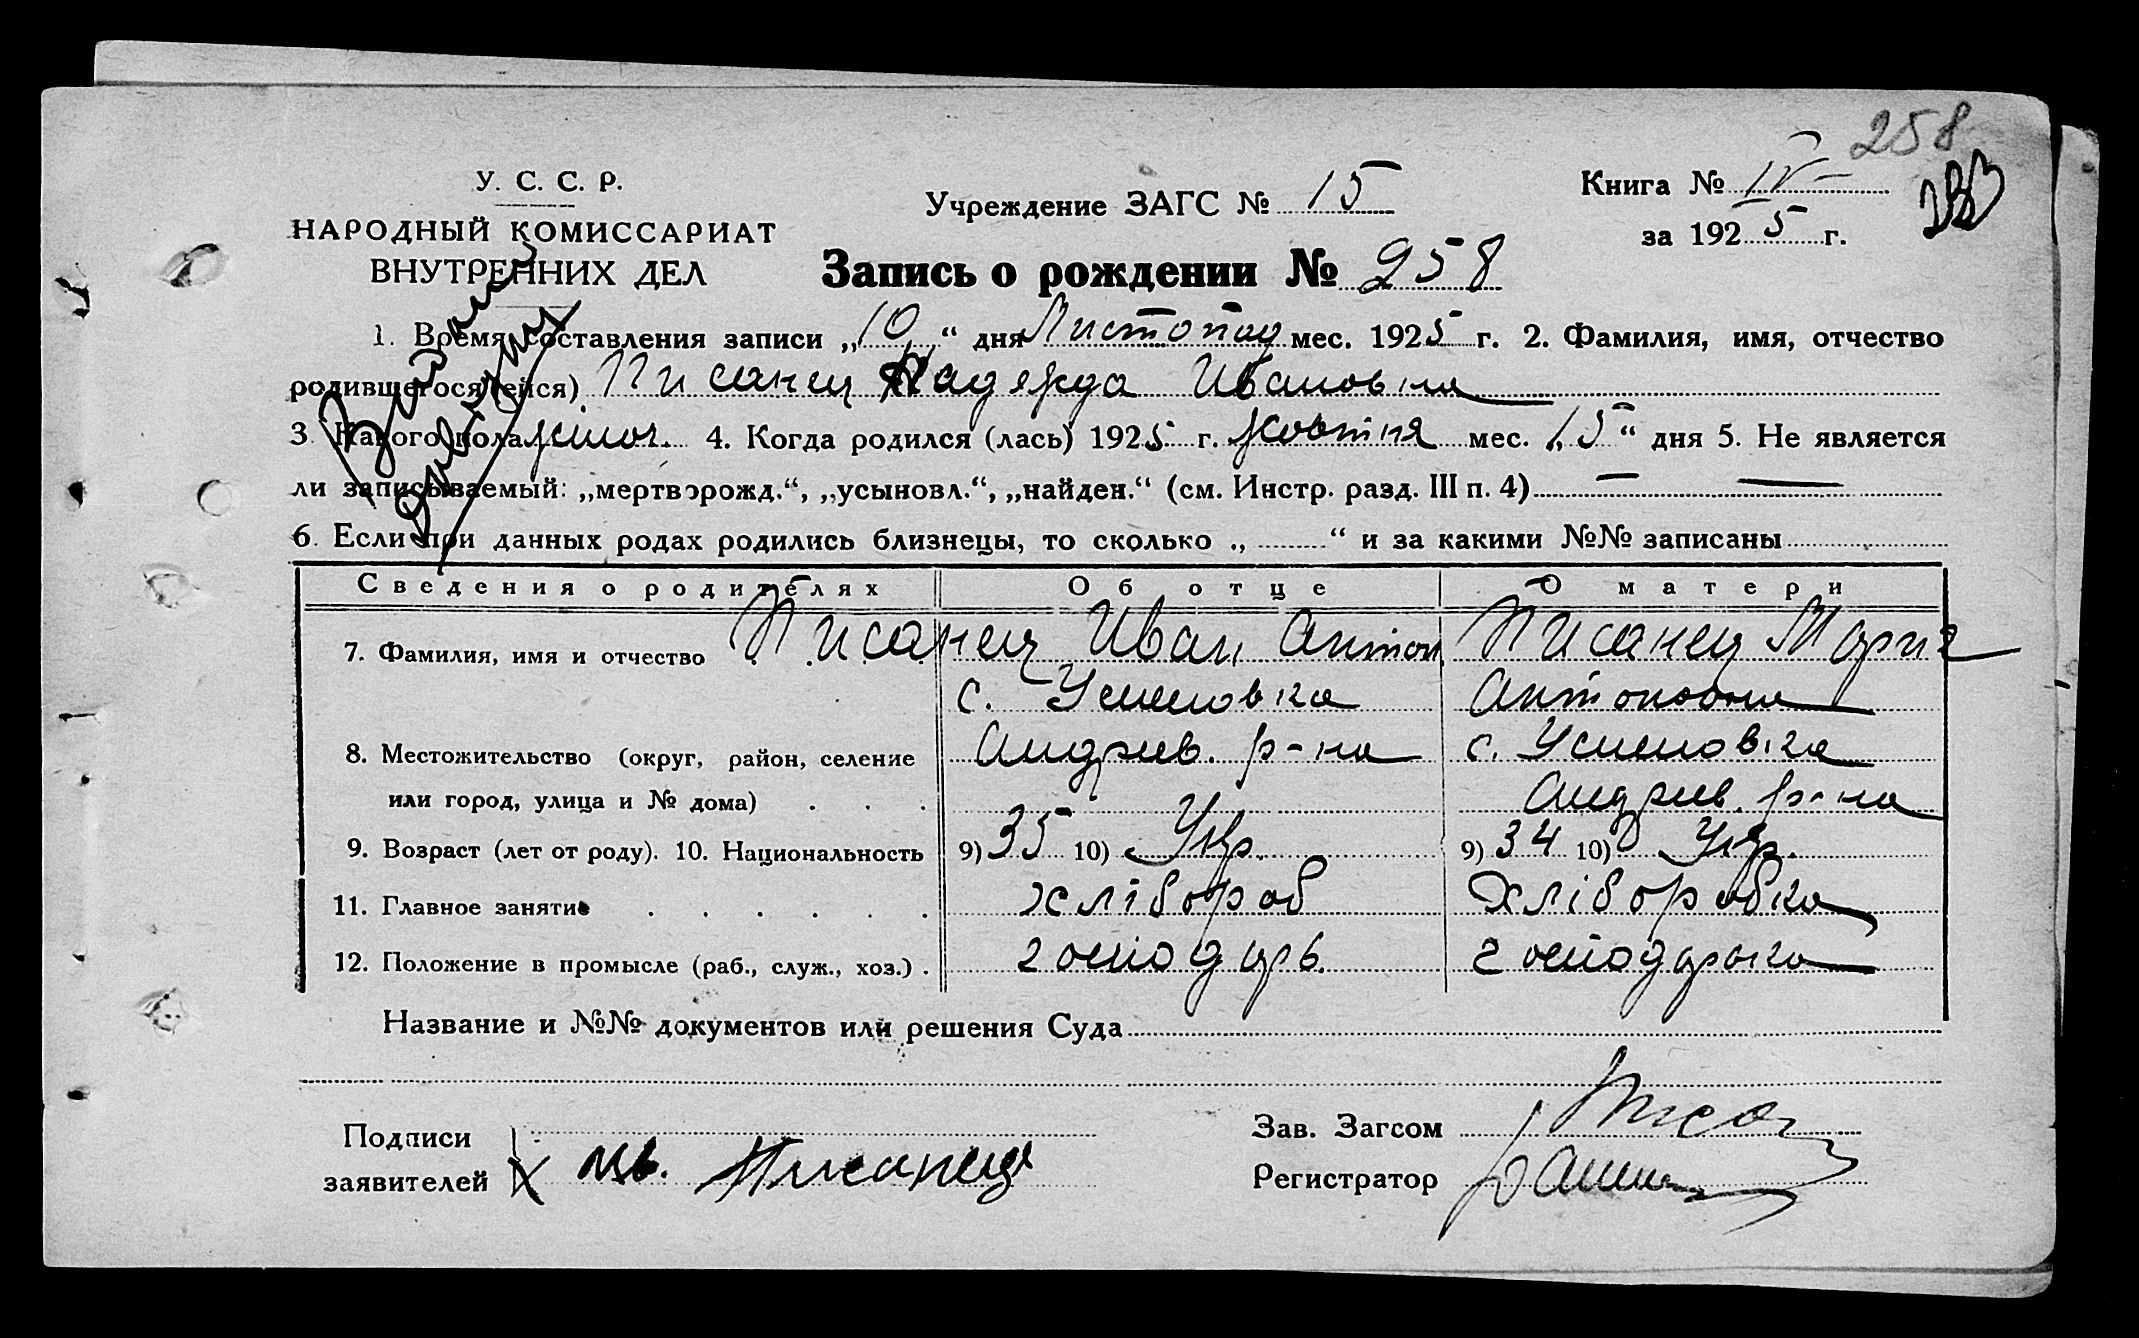 258
У. С. С. Р.
НАРОДНЫЙ КОМИССАРИАТ
ВНУТРЕННИХ ДЕЛ
Учреждение ЗАГС № 15
Книга № IV
за 1925 г.
Запись о рождении № 258
1. Время составления записи „10“ дня Листопад мес. 1925 г. 2. Фамилия, имя, отчество
родившегося (ейся) Писанец Надежда Ивановна
3. Какого пола жіноч. 4. Когда родился (лась) 1925 г. жовтня мес. „15“ дня 5. Не является
ли записываемый: „мертворожд.“, „усыновл.“, „найден.“ (см. Инстр. разд. III п. 4) — —
6. Если при данных родах родились близнецы, то сколько „ “ и за какими №№ записаны
Сведения о родителях Об отце О матери
7. Фамилия, имя и отчество Писанец Иван Антон Писанец Мария
с. Успеновка Антоновна
8. Местожительство (округ, район, селение Андрив. р-на с. Успеновка
или город, улица и № дома) Андрив. р-на
9. Возраст (лет от роду). 10. Национальность 9) 35 10) Укр. 9) 34 10) Укр.
11. Главное занятие хлібороб хліборобка
12. Положение в промысле (раб., служ., хоз.) господарь господарька
Название и №№ документов или решения Суда
Подписи
заявителей Писанец
Зав. Загсом
Регистратор